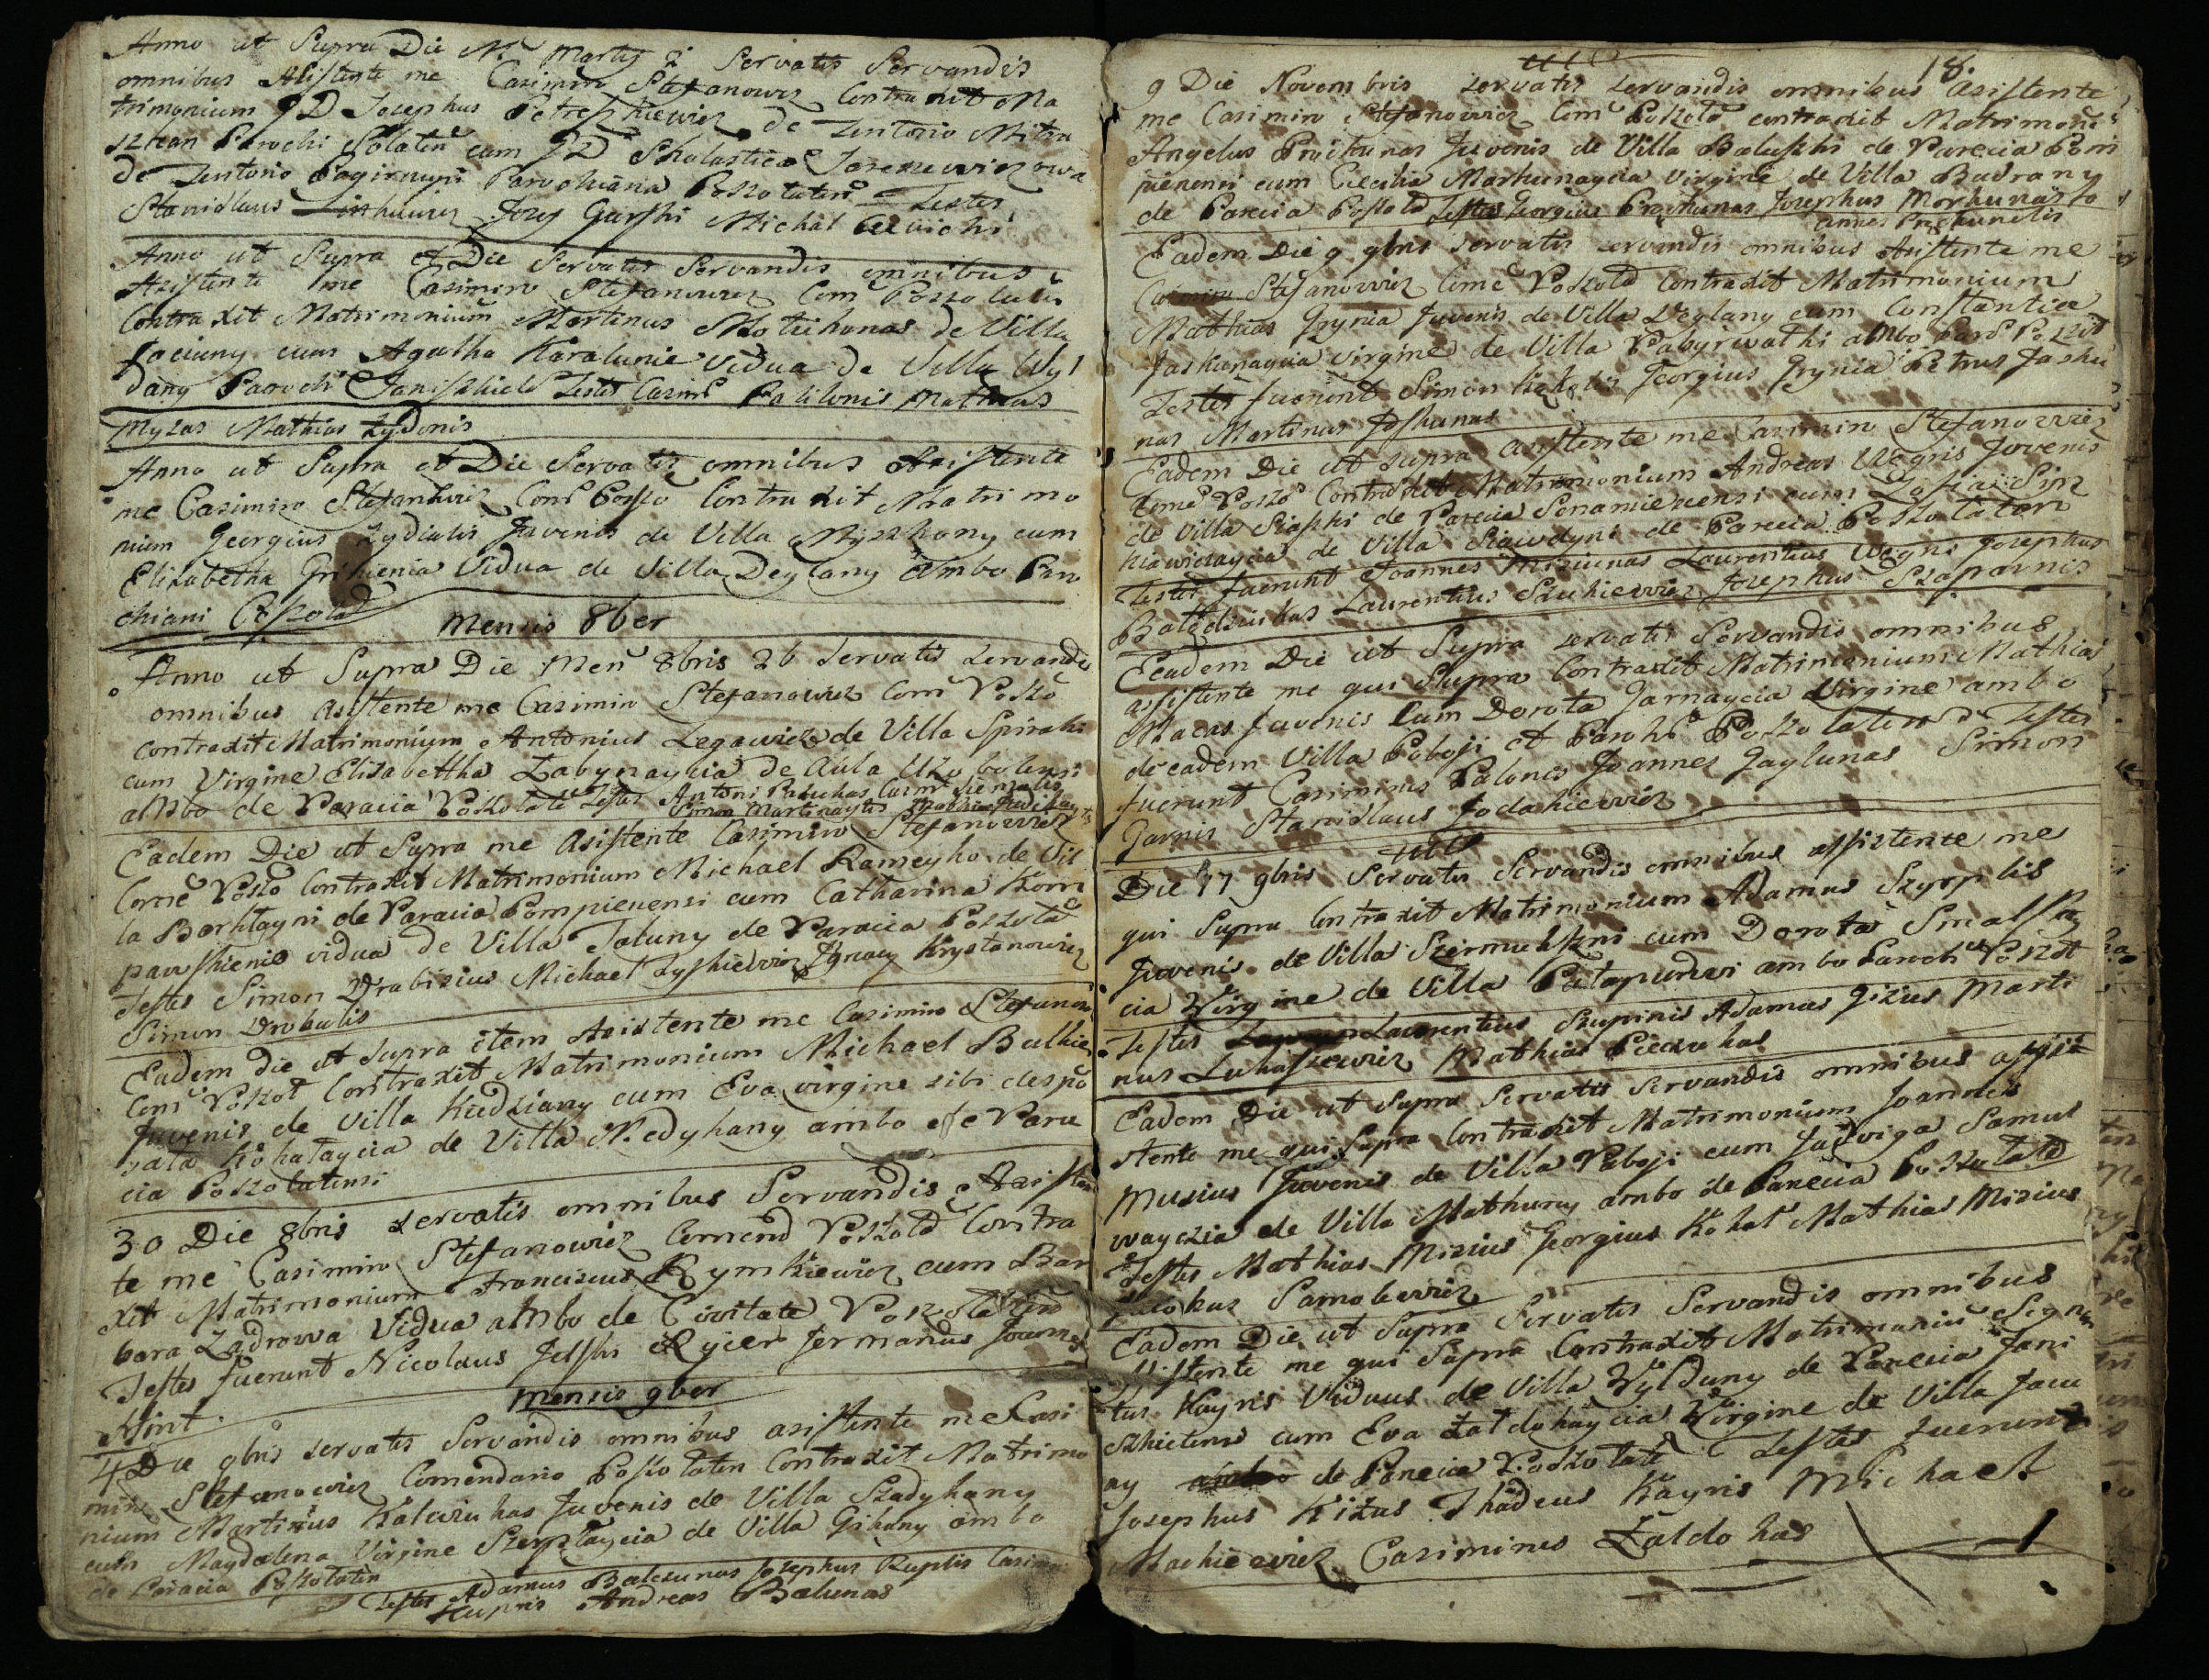 Anno ut Supra Die Martij 2 Servatis Servandis
omnibus Asistente me Casimiro Stefanowicz Contraxit Ma
trimonium GD Josephus Petreszkiewicz de Tentorio Mitra
Parochi cum GD Scholastica
de Tentorio Pagirnupi Parochiana Poszolaten Testes
Stanislaus Jozef Gurski Michal
Anno ut Supra et Die Servatis Servandis omnibus
Asistente me Casimiro Stefanowicz Com Poszolaten
Contraxit Matrimonium Martinus Moteikunas de Villa
Jociuny cum Agatha Karalunie Vidua de Villa Wyl
dany Paroch Janiszkiele Testes Casim Palilonis Mathias
Myzas Mathias Zydonis
Anno ut Supra et Die Servatis omnibus Asistente
me Casimiro Stefanowicz Com Poszo Contraxit Matrimo
nium Georgius Zydialis Juvenis de Villa Myszkany cum
Elisabetha Grikienia Vidua de Villa Deglany Ambo Paro
chiani Poszolat
Mensis 8ber
Anno ut Supra Die Men 8bris 26 Servatis servandis
omnibus asistente me Casimiro Stefanowicz Com Poszo
contraxit Matrimonium Antonius Legawicz de Villa Spiraki
cum Virgine Elisabettha Labynaycia de Aula
ambo de Paraecia Poszolate Testes Antoni Casim
Simon Martinaytis
Eadem Die ut Supra me Asistente Casimiro Stefanowicz
Come Poszo Contraxit Matrimonium Michael Rameyko de Vil
la Borklayni de Paraecia Pompienensi cum Catharina Kom
pawskienia vidua de Villa Toluny de Paraecia Poszola
Testes Simon Drabisius Michael Lyszkiewicz Ignacy Krystanowicz
Simon Drobulis
Eadem die ut Supra item Asistente me Casimiro Stefanow
Com Poszot Contraxit Matrimonium Michael Bulkie
Juvenis de Villa Kiedziany cum Eva virgine sibi despo
sata Kohataycia de Villa Medykany ambo de Parae
cia Poszolatensi
30 Die 8bris servatis omnibus Servandis Asisten
te me Casimiro Stefanowicz Comend Poszolat Contra
xit Matrimonium Franciscus Rymkiewicz cum Bar
bara Zudrowa Vidua ambo de Civitate Poszolaten
Testes fuerunt Nicolaus Jelski Rycer Jermanus Joannes
Mint
Mensis 9ber
4 Die 9bris servatis Servandis omnibus asistente me Casi
miro Stefanowicz Comendario Poszolaten Contraxit Matrimo
nium Martinus Juvenis de Villa Szadykany
cum Magdalena Virgine Szerplaycia de Villa Gikany ambo
de Paraecia Poszolaten
Testes Adamus Balczunas Josephus Ruplis Casimi
Kupris Andreas Balunas
18.
9 Die Novembris servatis servandis omnibus Asistente
me Casimiro Stefanowicz Com Poszola contraxit Matrimoni
Angelus Procikunas Juvenis de Villa Baluszki de Paraecia Pom
pienensi cum Cecilia Morkunaycia Virgine de Villa Budrany
de Paraecia Poszola Testes Georgius Prockunas Josephus Morkunas Jo
annes Prokunelis
Eadem Die 9 9bris servatis servandis omnibus Asistente me
Casimiro Stefanowicz Come Poszola Contraxit Matrimonium
Mathias Grynia Juvenis de Villa Deglany cum Constantia
Jaskunaycia virgine de Villa Pabyrwathi ambo Paro Poszol
Testes fuerunt Simon Georgius Grynia Petrus Jasku
nas Martinus Joskunas
Eadem Die ut supra asistente me Casimiro Stefanowicz
Come Poszo Contraxit Matrimonium Andreas Wegris Juvenis
de Villa Siaszki de Paraecia cum Zofia Syn
kiewiczaycia de Villa Siawdyni de Paraecia Poszolaten
Testes fuerunt Joannes Misiunas Laurentius Wegris Josephus
Laurentius Szukiewicz Josephus Szaparnis
Eadem Die ut Supra servatis Servandis omnibus
assistente me qui Supra Contraxit Matrimonium Mathias
Macas Juvenis Cum Dorota Jarnaycia Virgine ambo
de eadem Villa Poboji et Parohi Poszolaten Testes
fuerunt Casimirus Palonis Joannes Gaylunas Simon
Garnis Stanislaus Jodakiewicz
Die 17 9bris Servatis Servandis omnibus assistente me
qui Supra Contraxit Matrimonium Adamus Szyrplis
Juvenis de Villa Szermukszni cum Dorota Smalskay
cia Virgine de Villa ambo Paroch Poszol
Testes Laurentius Skupinis Adamus Gizius Marti
nus Lukaszewicz Mathias Pieczukas
Eadem Die ut Supra Servatis Servandis omnibus assis
stente me qui Supra Contraxit Matrimonium Joannes
Musius Juvenis de Villa Paboji cum Jadwiga Samul
waycia de Villa Mathuny ambo de Paraecia Poszolate
Testes Mathias Misius Georgius Kokat Mathias Misius
Samolewicz
Eadem Die ut Supra Servatis Servandis omnibus
Assistente me qui Supra Contraxit Matrimoniu
Kayris Viduus de Villa Wylduny de Paraecia Jani
szkielensi cum Eva Zaldokaycia Virgine de Villa
ny de Paraecia Poszolate Testes fuerunt
Josephus Kizus Thadeus Kayris Michael
Mackiewicz Casimirus Zaldokas